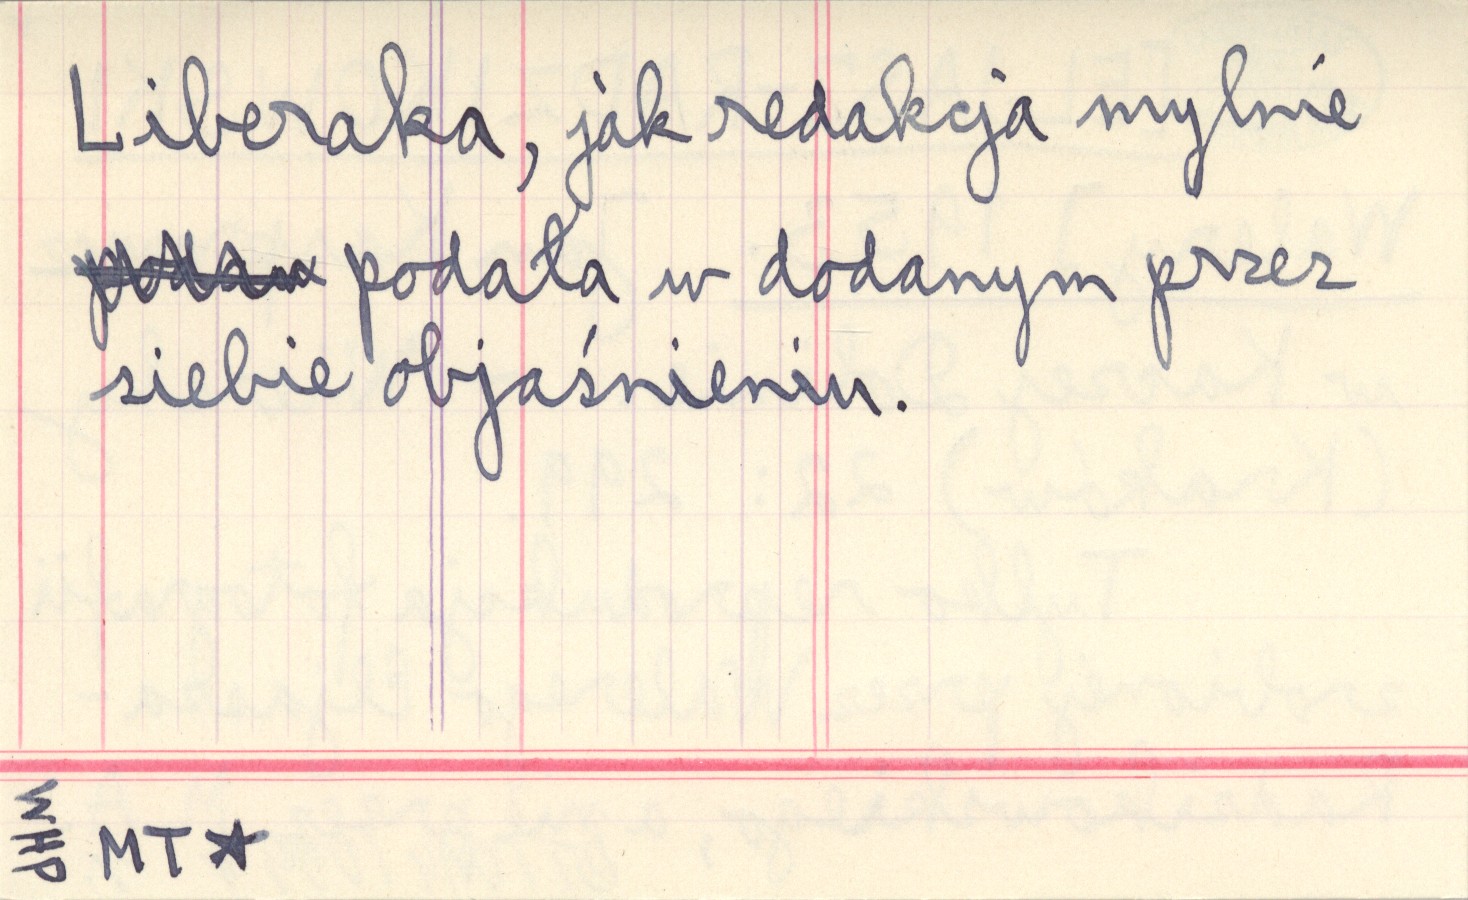 Liberaka, jak redakcja mylnie
podała w dodanym przez
siebie objaśnieniu.
WHP
MT*